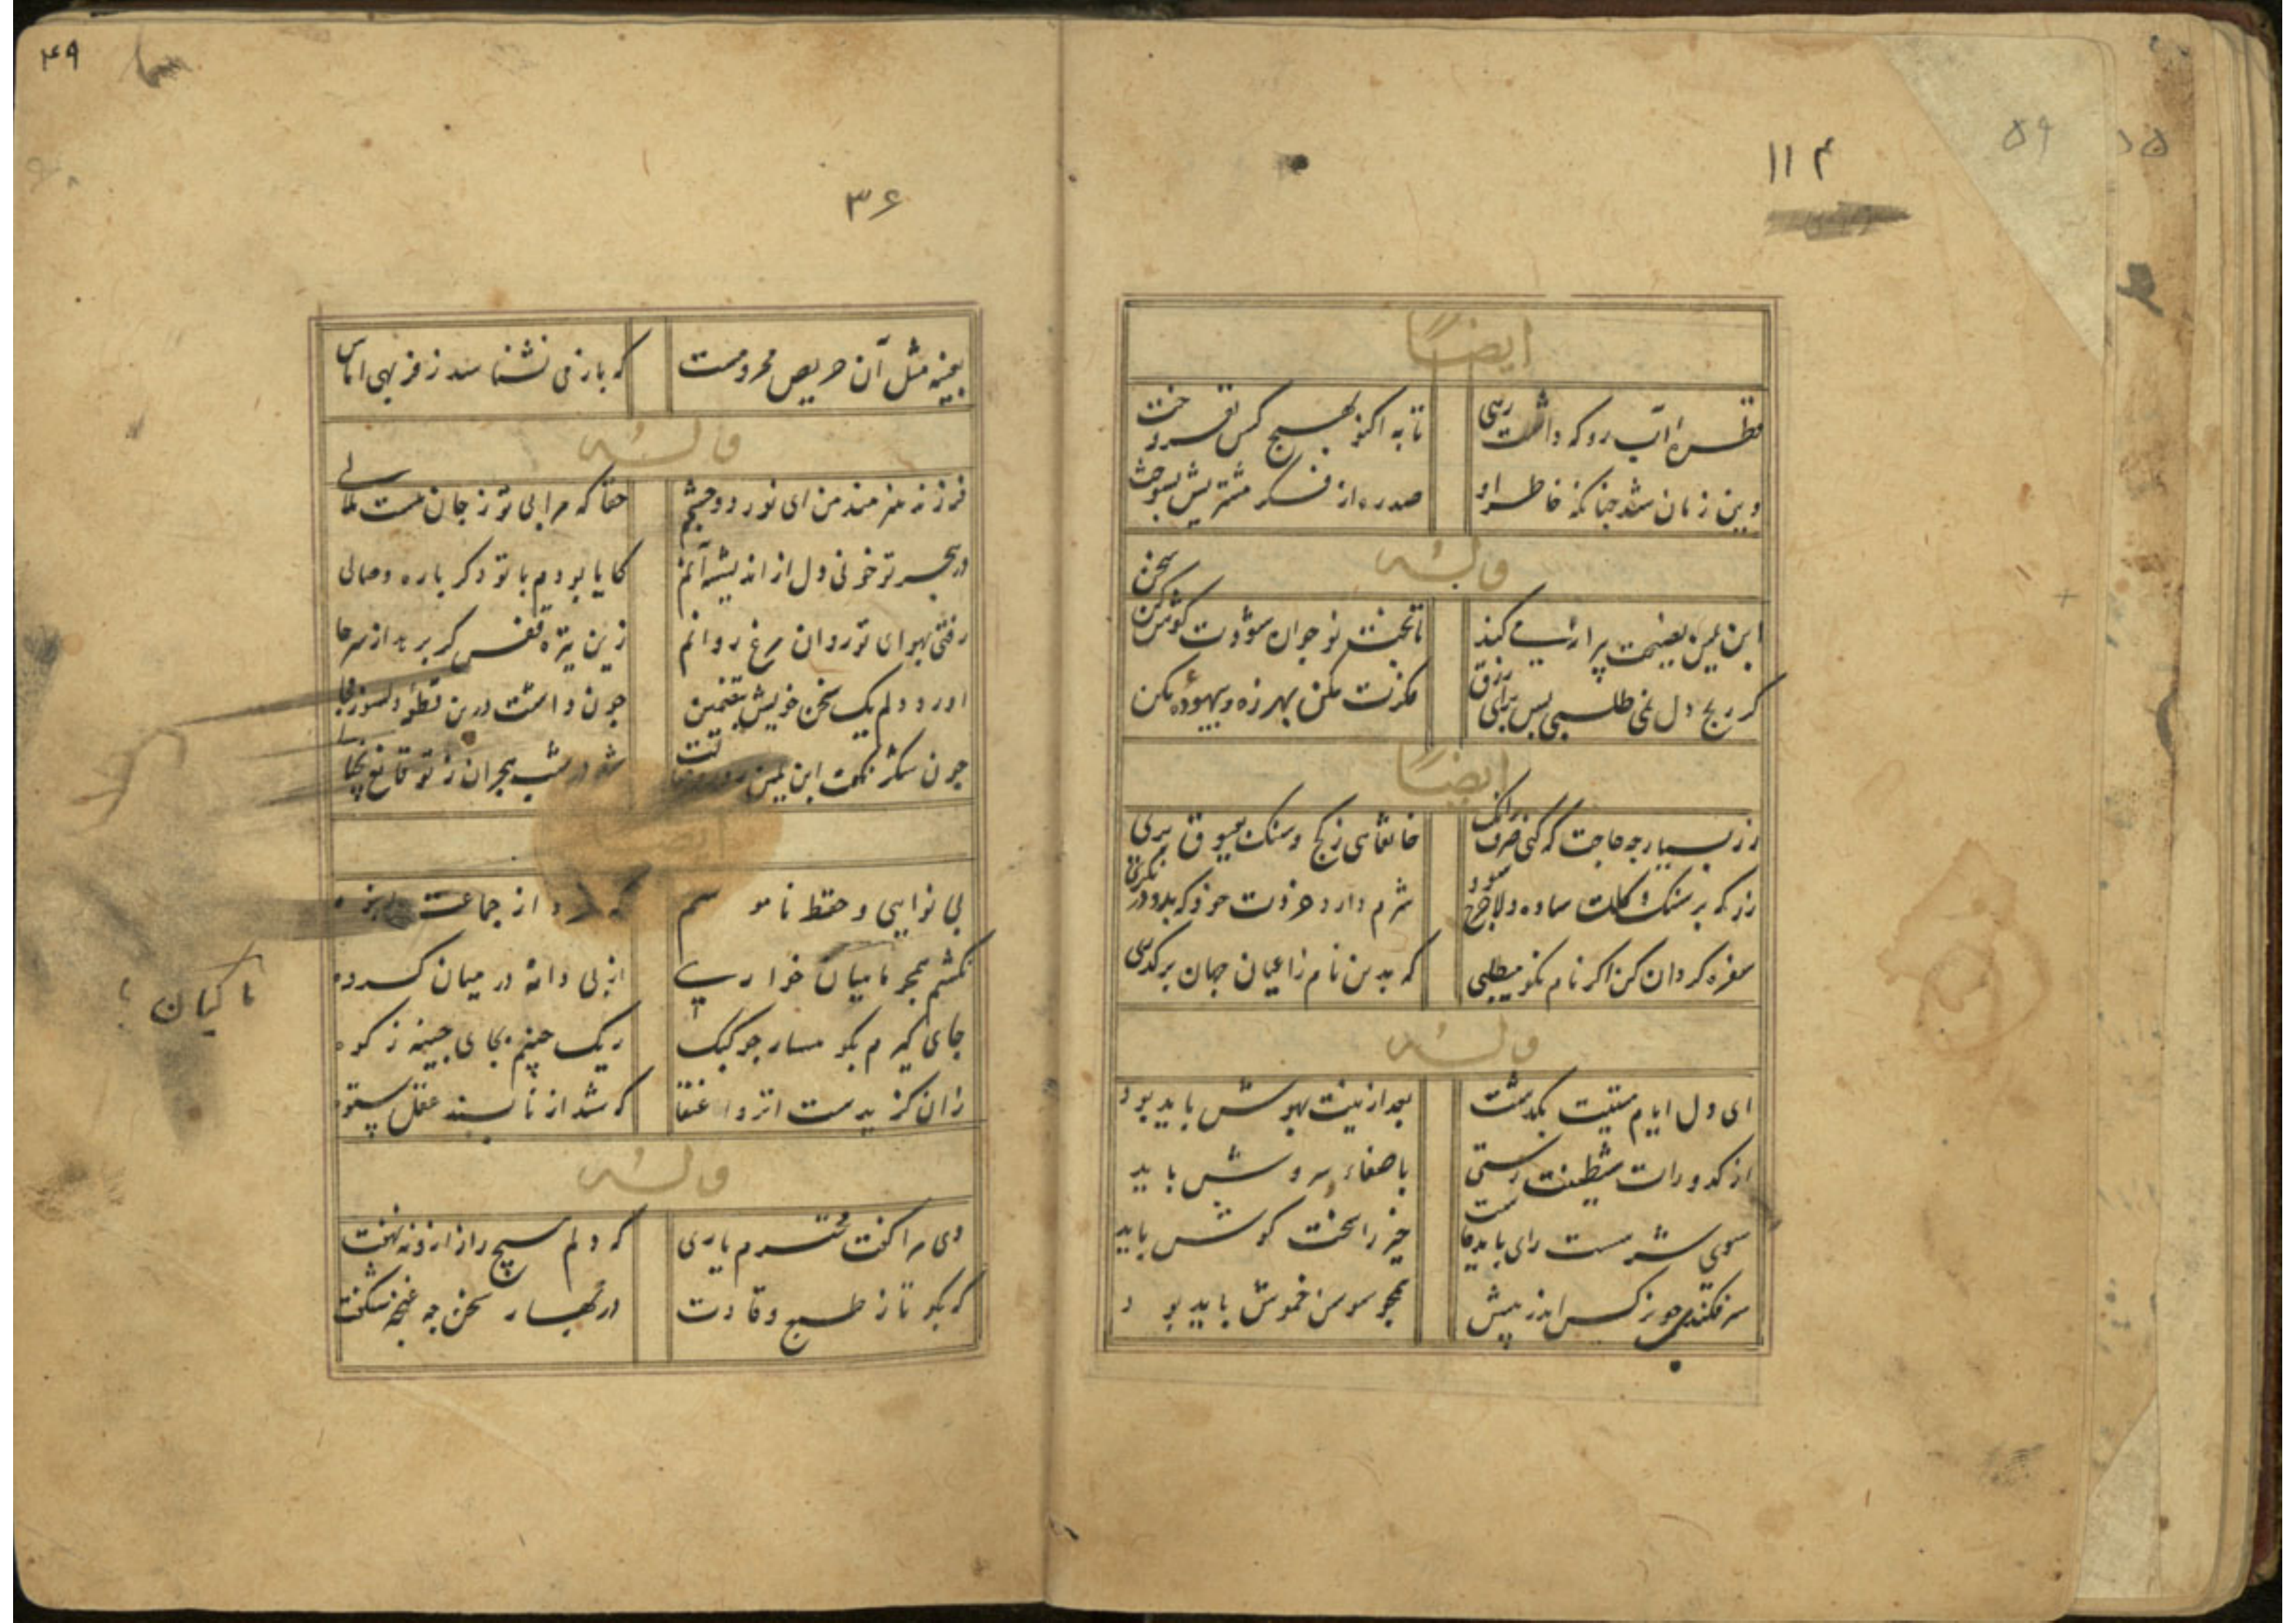 ۱۱۴
۵۹
ایضاً
قطره آب رو که داشت رهی تا به اکنون بهیچ کس نفروخت
وین زمان شد چنانکه خاطر او صد ره از فکر مشتریش بسوخت
وله
ابن یمین نصیحت پیرانه میکند تا بخت نوجوان شودت گوش کن سخن
گر رنج دل نمی طلبی بس برای رزق مکرنت مکن بهرزه و بیهوده مکن
ایضاً
زر بسیار چه حاجت که کنی صرف برانک خانقاهی ز گچ و سنگ بعیوق بری
زر که بر سنگ و گلت ساده دلا خرج شود شرم دارد خردت خود که بدو در نگری
سفره گردان کن اگر نام نکو میطلبی که بدین نام ز اعیان جهان برگذری
وله
ای دل ایام مستیت بگذشت بعد ازینت بهوش باید بود
از کدورات شیطنت رستی با صفاء سروش باید
سوی شرمست رای باید خاست خیر را سخت کوش باید
سرفکنده چو نرگس اندر پیش همچو سوسن خموش باید بود
۴۹
۳۶
بعینه مثل آن حریص محرومست که باز می نشناسد ز فربهی اماس
وله
فرزند هنرمند من ای نور دو چشمم حقا که مرا بی تو ز جان هست ملالی
در هجر تو خونی دل از اندیشه آنم کایا بودم با تو دگر باره وصالی
رفتی بهوای تو روان مرغ روانم زین تیره قفس گر بر بد از سر حا
اورد دلم یک سخن خویش بتضمین چون داشت درین قطعه دلسوز مجا
چون شکر نگفت ابن یمین روز وصالت شد در شب هجران ز تو قانع بخیا
بی نوایی و حفظ ناموسم از جماعت
نکشم همچو ماکیان خواری از پی دانه در میان گروه
جای گیرم بکوهسار چو کبک ریک چینم بجای چینه ز کوه
زان گزیدست انزوا عنقا که شد از ناپسند عقل ستوه
ماکیان
وله
دی مرا گفت محترم یاری که دلم هیچ راز ازو نهفت
که بگو تا ز طبع وقادت در بهار سخن چه غنچه شکفت